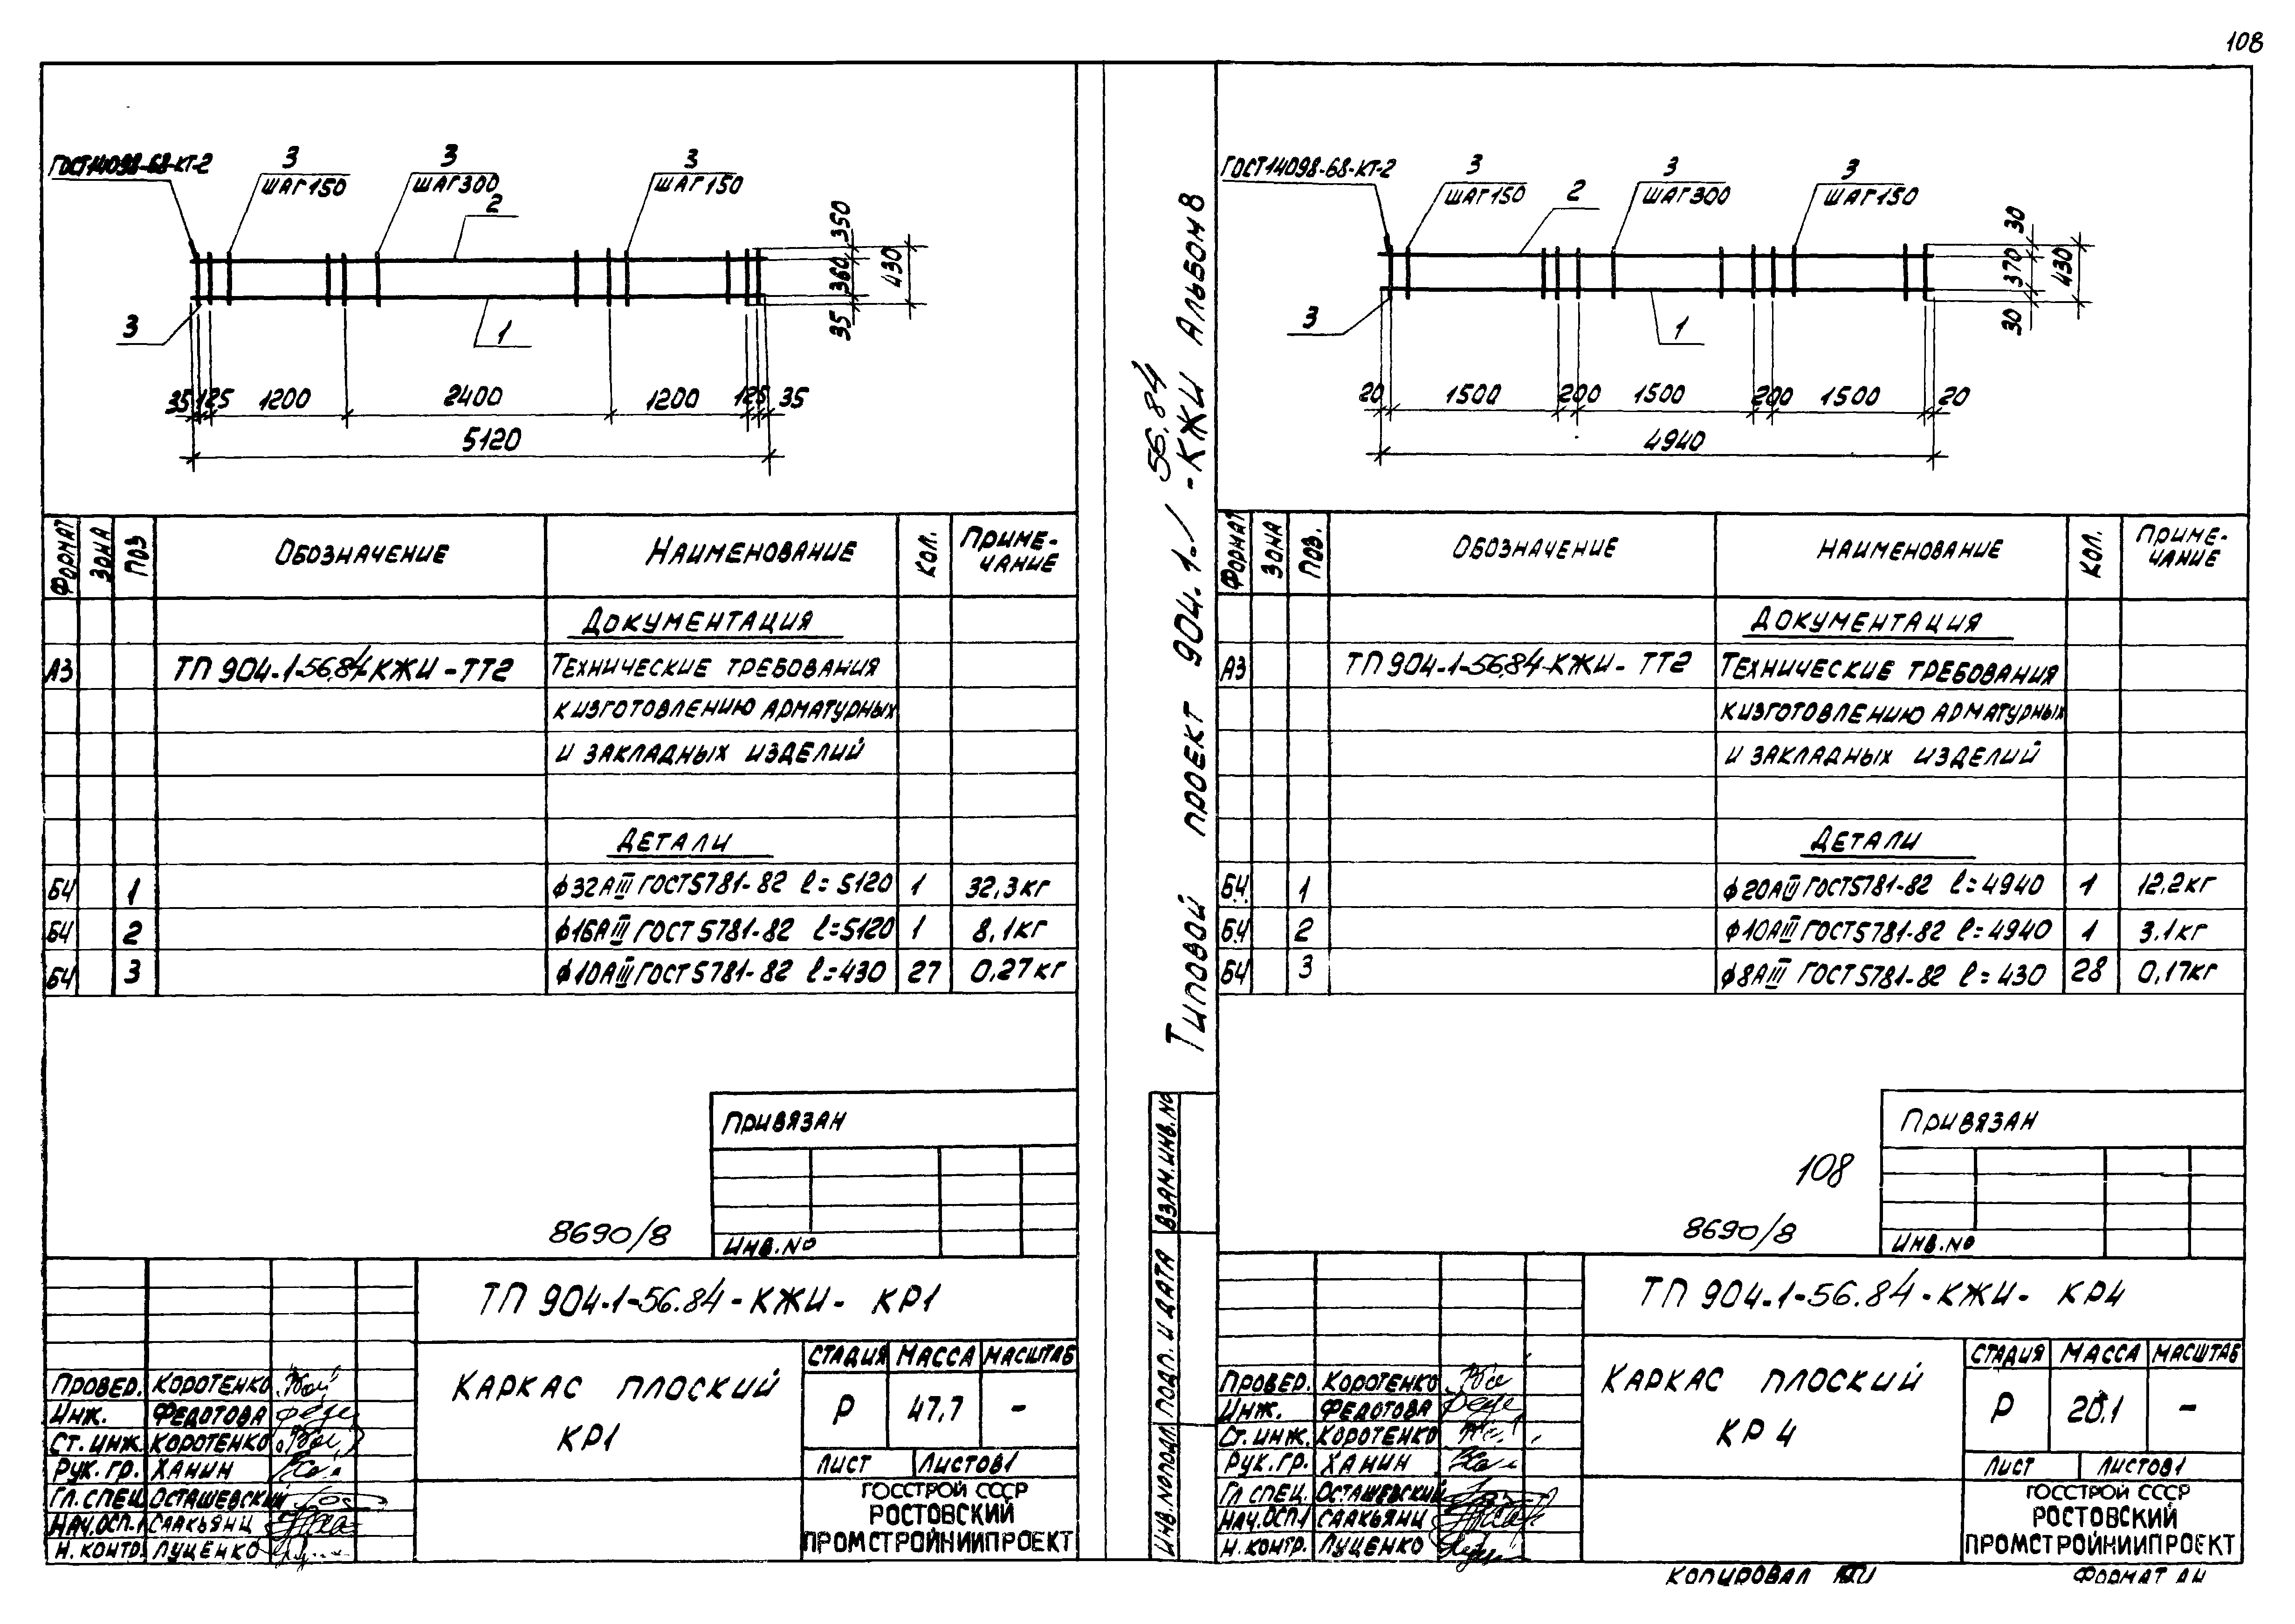 108
ГОСТ14098-68-КТ-2
3
ШАГ150
3
ШАГ300
2
3
ШАГ150
350
360
430
35
3
1
35
125
1200
2400
1200
125
35
5120
ФОРМАТ
ЗОНА
ПОЗ
ОБОЗНАЧЕНИЕ
НАИМЕНОВАНИЕ
КОЛ.
ПРИМЕ-
ЧАНИЕ
ДОКУМЕНТАЦИЯ
А3 ТП 904-1-56.84-КЖИ-ТТ2 ТЕХНИЧЕСКИЕ ТРЕБОВАНИЯ
К ИЗГОТОВЛЕНИЮ АРМАТУРНЫХ
И ЗАКЛАДНЫХ ИЗДЕЛИЙ
ДЕТАЛИ
БЧ 1 ф32АIII ГОСТ5781-82 ℓ=5120 1 32,3кг
БЧ 2 ф16АIII ГОСТ 5781-82 ℓ=5120 1 8,1кг
БЧ 3 ф10АIII ГОСТ 5781-82 ℓ=430 27 0,27кг
ПРИВЯЗАН
8690/8
ИНВ.№
ТП 904-1-56.84-КЖИ- КР1
КАРКАС ПЛОСКИЙ
КР1
СТАДИЯ МАССА МАСШТАБ
Р 47,7 –
ЛИСТ ЛИСТОВ1
ГОССТРОЙ СССР
РОСТОВСКИЙ
ПРОМСТРОЙНИИПРОЕКТ
ПРОВЕР. КОРОТЕНКО
ИНЖ. ФЕДОТОВА
СТ. ИНЖ. КОРОТЕНКО
РУК. ГР. ХАНИН
ГЛ. СПЕЦ. ОСТАШЕВСКИЙ
НАЧ.ОСП.1 СААКЬЯНЦ
Н. КОНТР. ЛУЦЕНКО
ТИПОВОЙ ПРОЕКТ 904.1-/ 56.84 -КЖИ АЛЬБОМ 8
ВЗАМ.ИНВ.№
ПОДП. И ДАТА
ИНВ.№ПОДЛ.
ГОСТ14098-68-КТ-2
3
ШАГ150
2
3
ШАГ300
3
ШАГ150
30
370
430
30
3
1
20
1500
200
1500
200
1500
20
4940
ФОРМАТ
ЗОНА
ПОЗ.
ОБОЗНАЧЕНИЕ
НАИМЕНОВАНИЕ
КОЛ.
ПРИМЕ-
ЧАНИЕ
ДОКУМЕНТАЦИЯ
А3 ТП 904-1-56.84-КЖИ- ТТ2 ТЕХНИЧЕСКИЕ ТРЕБОВАНИЯ
К ИЗГОТОВЛЕНИЮ АРМАТУРНЫХ
И ЗАКЛАДНЫХ ИЗДЕЛИЙ
ДЕТАЛИ
БЧ. 1 ф20АIII ГОСТ5781-82 ℓ=4940 1 12,2кг
БЧ 2 ф10АIII ГОСТ5781-82 ℓ=4940 1 3,1кг
БЧ 3 ф8АIII ГОСТ5781-82 ℓ=430 28 0,17кг
ПРИВЯЗАН
108
8690/8
ИНВ.№
ТП 904.1-56.84-КЖИ- КР4
КАРКАС ПЛОСКИЙ
КР4
СТАДИЯ МАССА МАСШТАБ
Р 20,1 –
ЛИСТ ЛИСТОВ1
ГОССТРОЙ СССР
РОСТОВСКИЙ
ПРОМСТРОЙНИИПРОЕКТ
ПРОВЕР. КОРОТЕНКО
ИНЖ. ФЕДОТОВА
СТ. ИНЖ. КОРОТЕНКО
РУК.ГР. ХАНИН
ГЛ СПЕЦ. ОСТАШЕВСКИЙ
НАЧ.ОСП.1 СААКЬЯНЦ
Н.КОНТР. ЛУЦЕНКО
КОПИРОВАЛ
ФОРМАТ А4